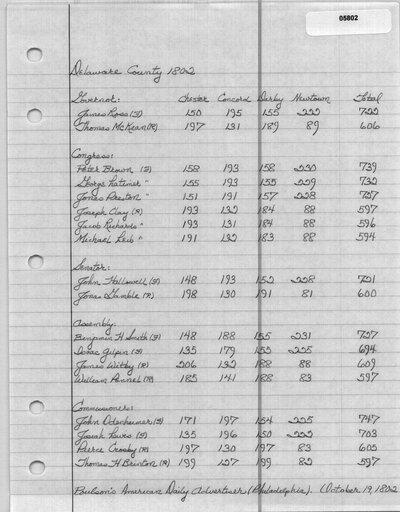 05802
Delaware County 1802
Governor: Chester Concord Darby Newtown Total
James Ross (F) 150 195 155 222 722
Thomas McKean (R) 197 131 189 89 606
Congress:
Peter Brown (F) 158 193 158 230 739
George Latimer " 155 193 155 229 732
Jonas Preston " 151 191 157 228 727
Joseph Clay (R) 193 132 184 88 597
Jacob Richards " 193 131 184 88 596
Michael Leib " 191 132 183 88 594
Senator:
John Hollowell (F) 148 193 152 228 721
Jonas Gamble (R) 198 130 191 81 600
Assembly:
Benjamin H Smith (F) 148 188 155 231 727
Isaac Gilpin (F) 135 179 155 225 694
James Withy (R) 206 132 188 88 609
William Pennel (R) 185 141 188 83 597
Commissioners:
John Odenheimer (F) 171 197 154 225 747
Josiah Lewis (F) 135 196 150 222 703
Pierce Crosby (R) 197 130 197 83 605
Thomas H Brinton (R) 199 127 199 82 597
Poulson's American Daily Advertiser (Philadelphia). October 19, 1802